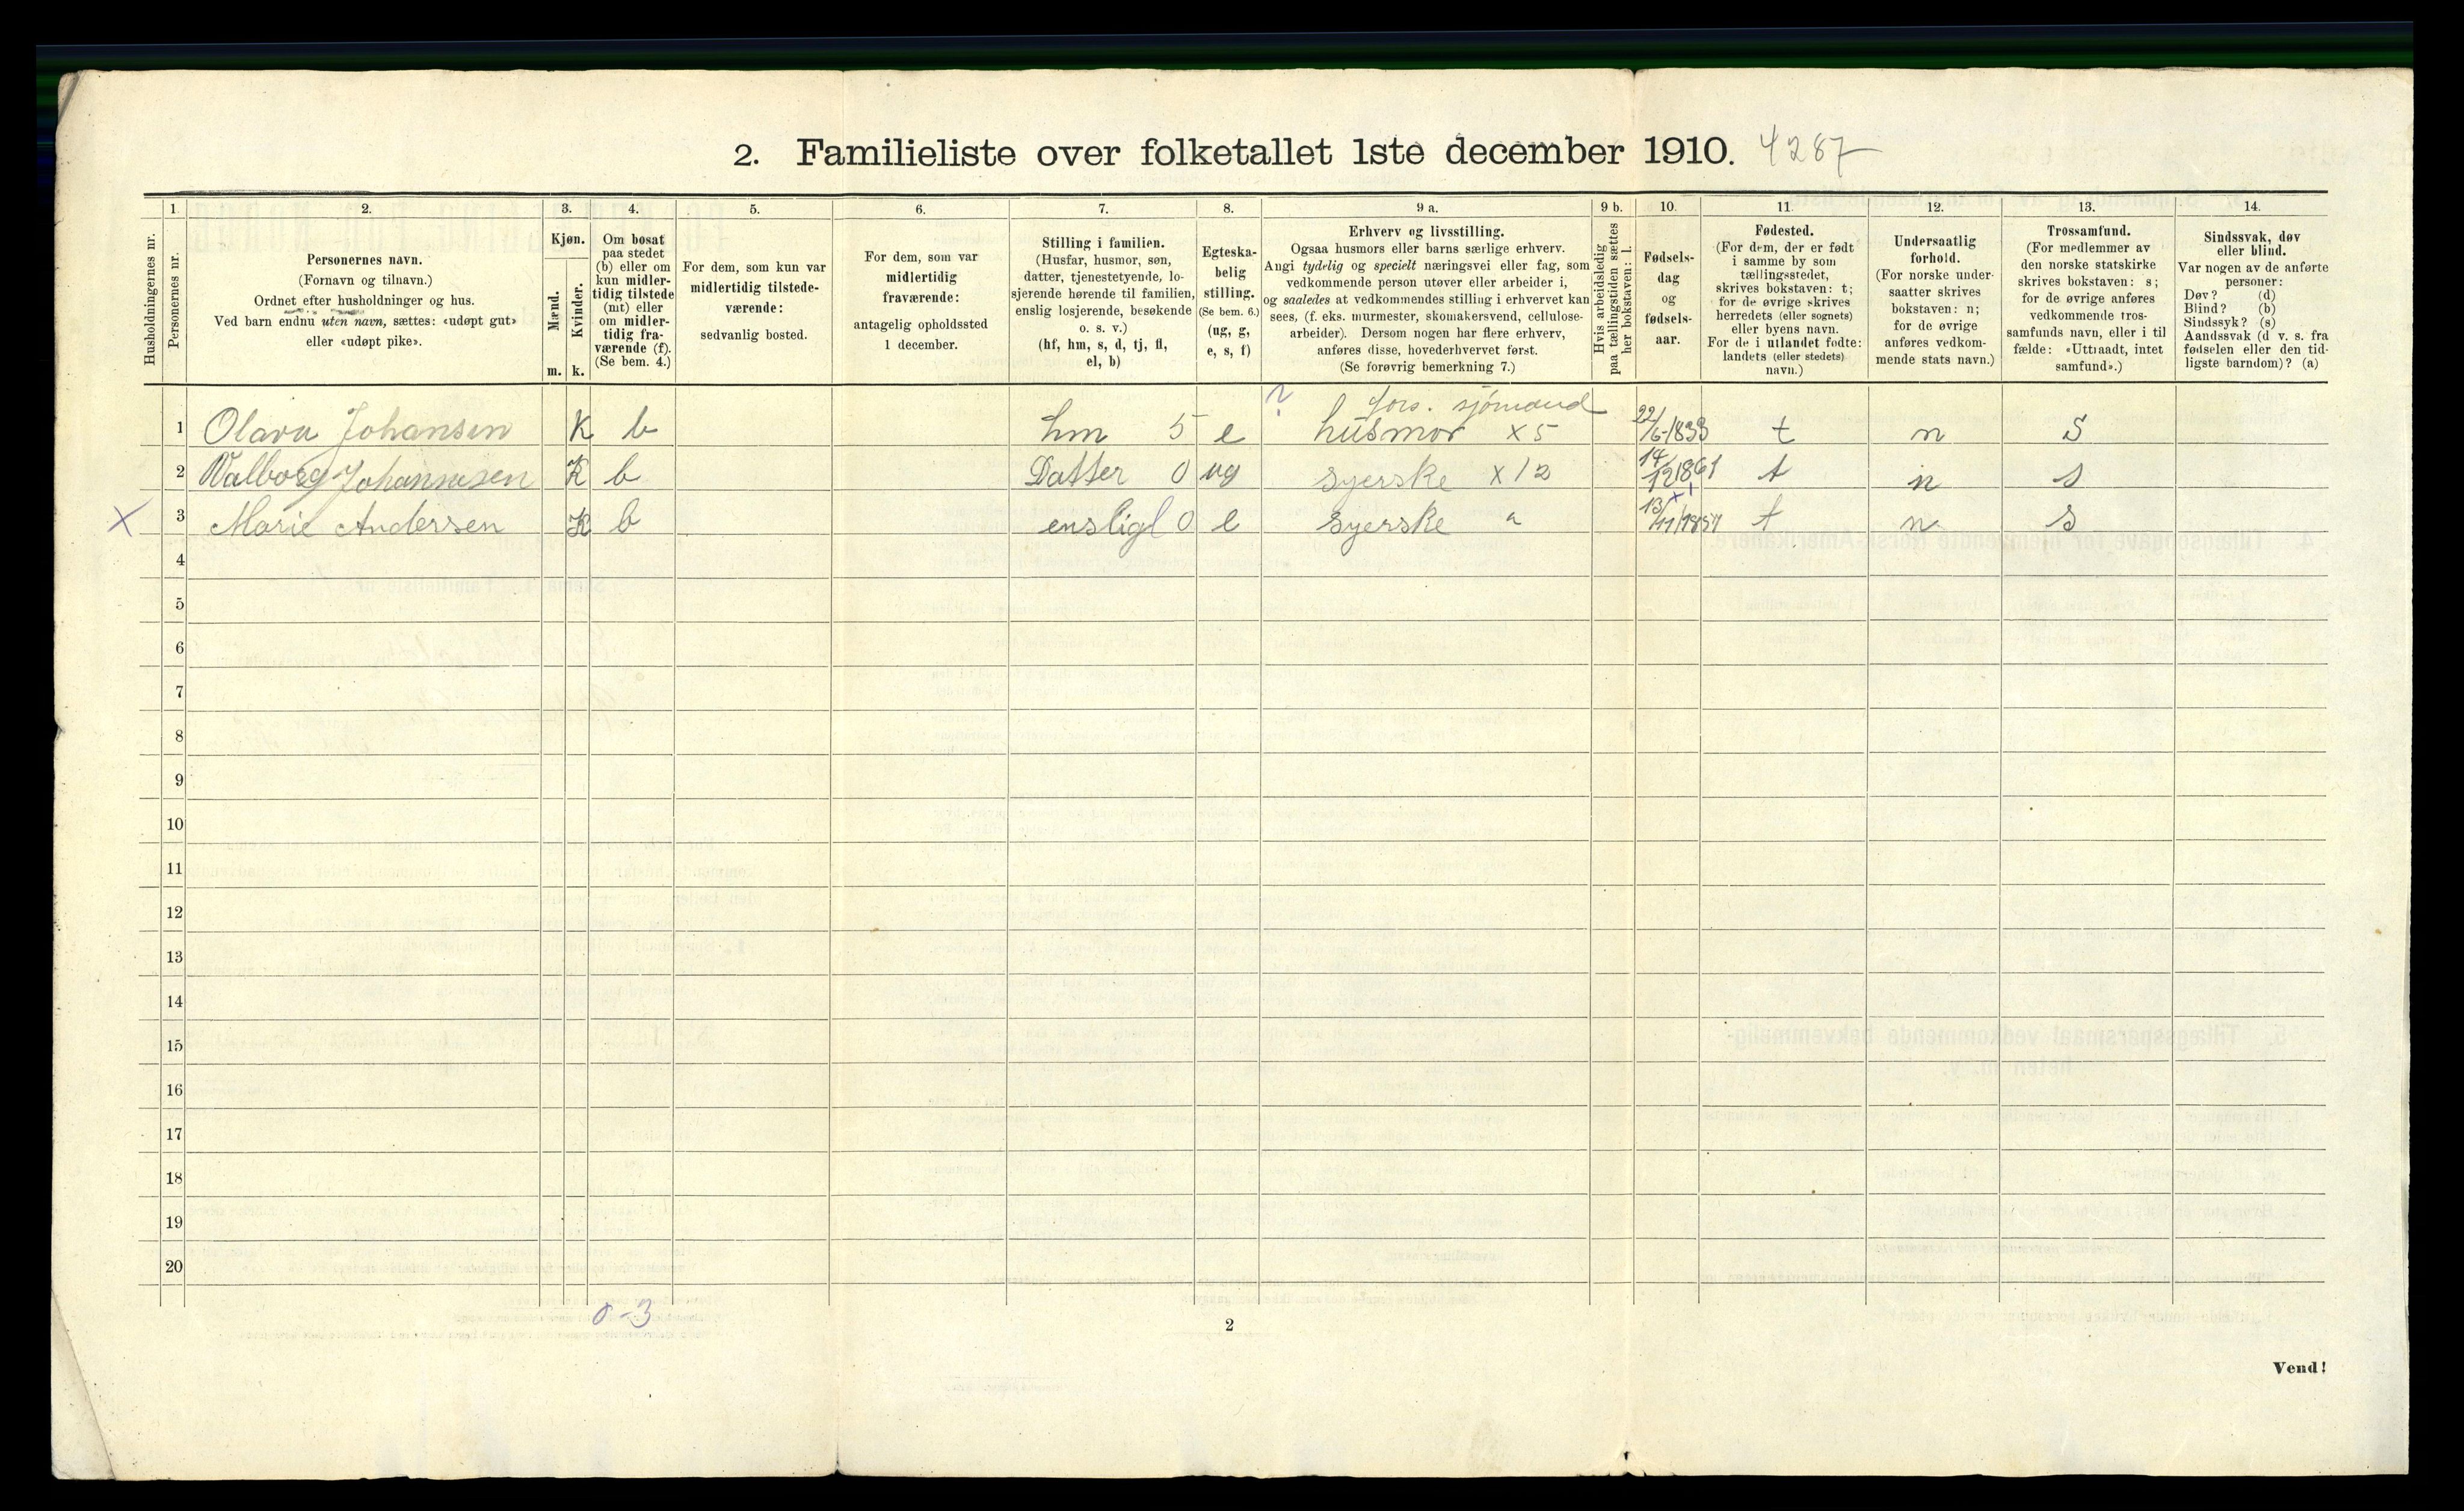 2. Familieliste over folketallet 1ste december 1910. 4287
Husholdningernes nr.
1.
Personernes nr.
2.
Personernes navn.
(Fornavn og tilnavn.)
Ordnet efter husholdninger og hus.
Ved barn endnu uten navn, sættes: «udøpt gut»
eller «udøpt pike».
3.
Kjøn.
Mænd.
Kvinder.
m. k.
4.
Om bosat
paa stedet
(b) eller om
kun midler-
tidig tilstede
(mt) eller
om midler-
tidig fra-
værende (f).
(Se bem. 4.)
5.
For dem, som kun var
midlertidig tilstede-
værende:
sedvanlig bosted.
6.
For dem, som var
midlertidig
fraværende:
antagelig opholdssted
1 december.
7.
Stilling i familien.
(Husfar, husmor, søn,
datter, tjenestetyende, lo-
sjerende hørende til familien,
enslig losjerende, besøkende
o. s. v.)
(hf, hm, s, d, tj, fl,
el, b)
8.
Egteska-
belig
stilling.
(Se bem. 6.)
(ug, g,
e, s, f)
9 a.
Erhverv og livsstilling.
Ogsaa husmors eller barns særlige erhverv.
Angi tydelig og specielt næringsvei eller fag, som
vedkommende person utøver eller arbeider i,
og saaledes at vedkommendes stilling i erhvervet kan
sees, (f. eks. murmester, skomakersvend, cellulose-
arbeider). Dersom nogen har flere erhverv,
anføres disse, hovederhvervet først.
(Se forøvrig bemerkning 7.)
9 b.
Hvis arbeidsledig
paa tællingstiden sættes
her bokstaven: l.
10.
Fødsels-
dag
og
fødsels-
aar.
11.
Fødested.
(For dem, der er født
i samme by som
tællingsstedet,
skrives bokstaven: t;
for de øvrige skrives
herredets (eller sognets)
eller byens navn.
For de i utlandet fødte:
landets (eller stedets)
navn.)
12.
Undersaatlig
forhold.
(For norske under-
saatter skrives
bokstaven: n;
for de øvrige
anføres vedkom-
mende stats navn.)
13.
Trossamfund.
(For medlemmer av
den norske statskirke
skrives bokstaven: s;
for de øvrige anføres
vedkommende tros-
samfunds navn, eller i til
fælde: «Uttraadt, intet
samfund».)
14.
Sindssvak, døv
eller blind.
Var nogen av de anførte
personer:
Døv? (d)
Blind? (b)
Sindssyk? (s)
Aandssvak (d v. s. fra
fødselen eller den tid-
ligste barndom)? (a)
? fors. sjömand
1 Olava Johansen K b hm 5 e husmor x 5 22/6-1833 t n S
2 Valborg Johannesen K b Datter 0 ug syerske x 12 14/12 1861 t n s
X 3 Marie Andersen K b ensligl 0 e syerske a 13/11 1857 t n s
4
5
6
7
8
9
10
11
12
13
14
15
16
17
18
19
20
0-3
2
Vend!